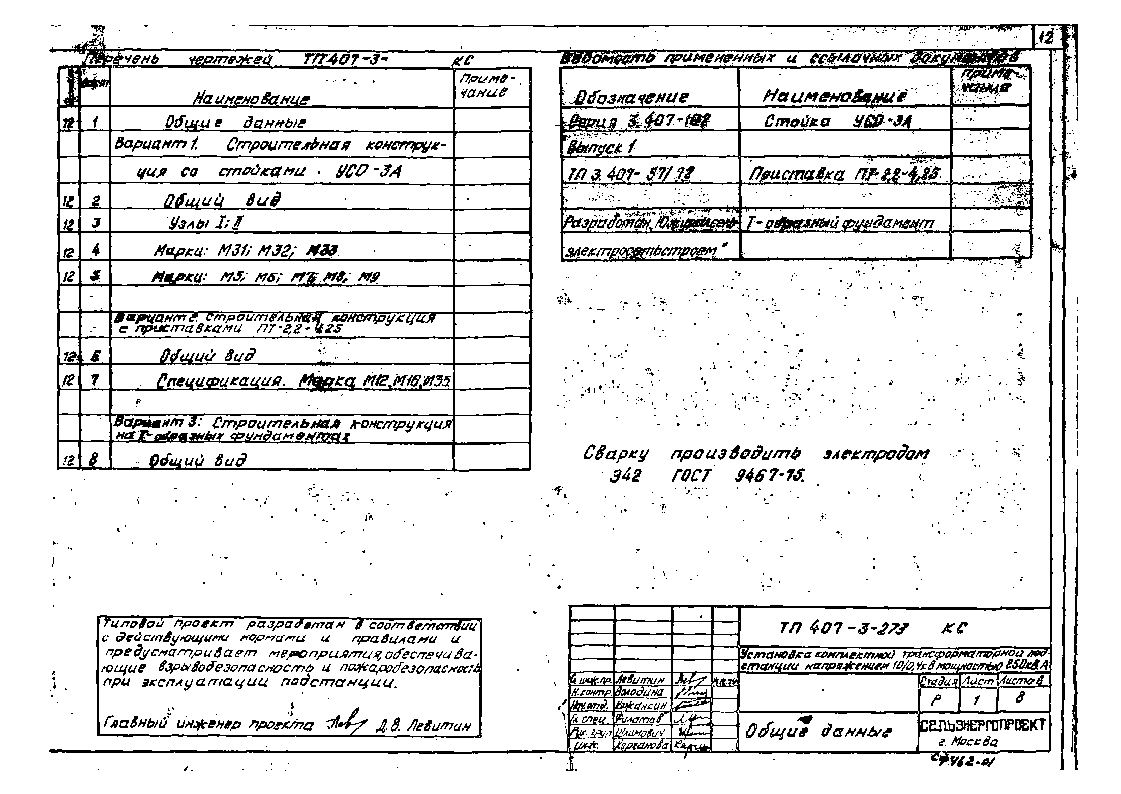 12
Перечень чертежей ТП407-3- КС
Лист Наименование Примечание
12 1 Общие данные
Вариант 1. Строительная конструк-
ция со стойками УСО-3А
12 2 Общий вид
12 3 Узлы I; II
12 4 Марки: М31; М32; М33
12 5 Марки: М5; М6; М7; М8; М9
Вариант 2. Строительная конструкция
с приставками ПТ-2,2-4,25
12 6 Общий вид
12 7 Спецификация. Марка М12, М16, М35
Вариант 3: Строительная конструкция
на Т-образных фундаментах
12 8 Общий вид
Ведомость примененных и ссылочных документов
Обозначение Наименование Примечание
Серия 3.407-102 Стойка УСО-3А
Выпуск 1
ТП 3.407-57/72 Приставка ПТ-2,2-4,25
Разработан Т-образный фундамент
электросетьстроем"
Сварку производить электродом
Э42 ГОСТ 9467-75.
Типовой проект разработан в соответствии
с действующими нормами и правилами и
предусматривает мероприятия, обеспечива-
ющие взрывобезопасность и пожаробезопасность
при эксплуатации подстанции.
Главный инженер проекта Д.В. Левитин
ТП 407-3-273 КС
Установка комплектной трансформаторной под
станции напряжением 10/0,4кВ мощностью 250кВА
Гл.инж.пр. Левитин
Н.контр. Володина
Нач.отд.
Гл. спец. Филатов
Рук. груп. Шлимович
Инж. Корганова
Стадия Лист Листов
Р 1 8
Общие данные
СЕЛЬЭНЕРГОПРОЕКТ
г. Москва
СФ 462-01